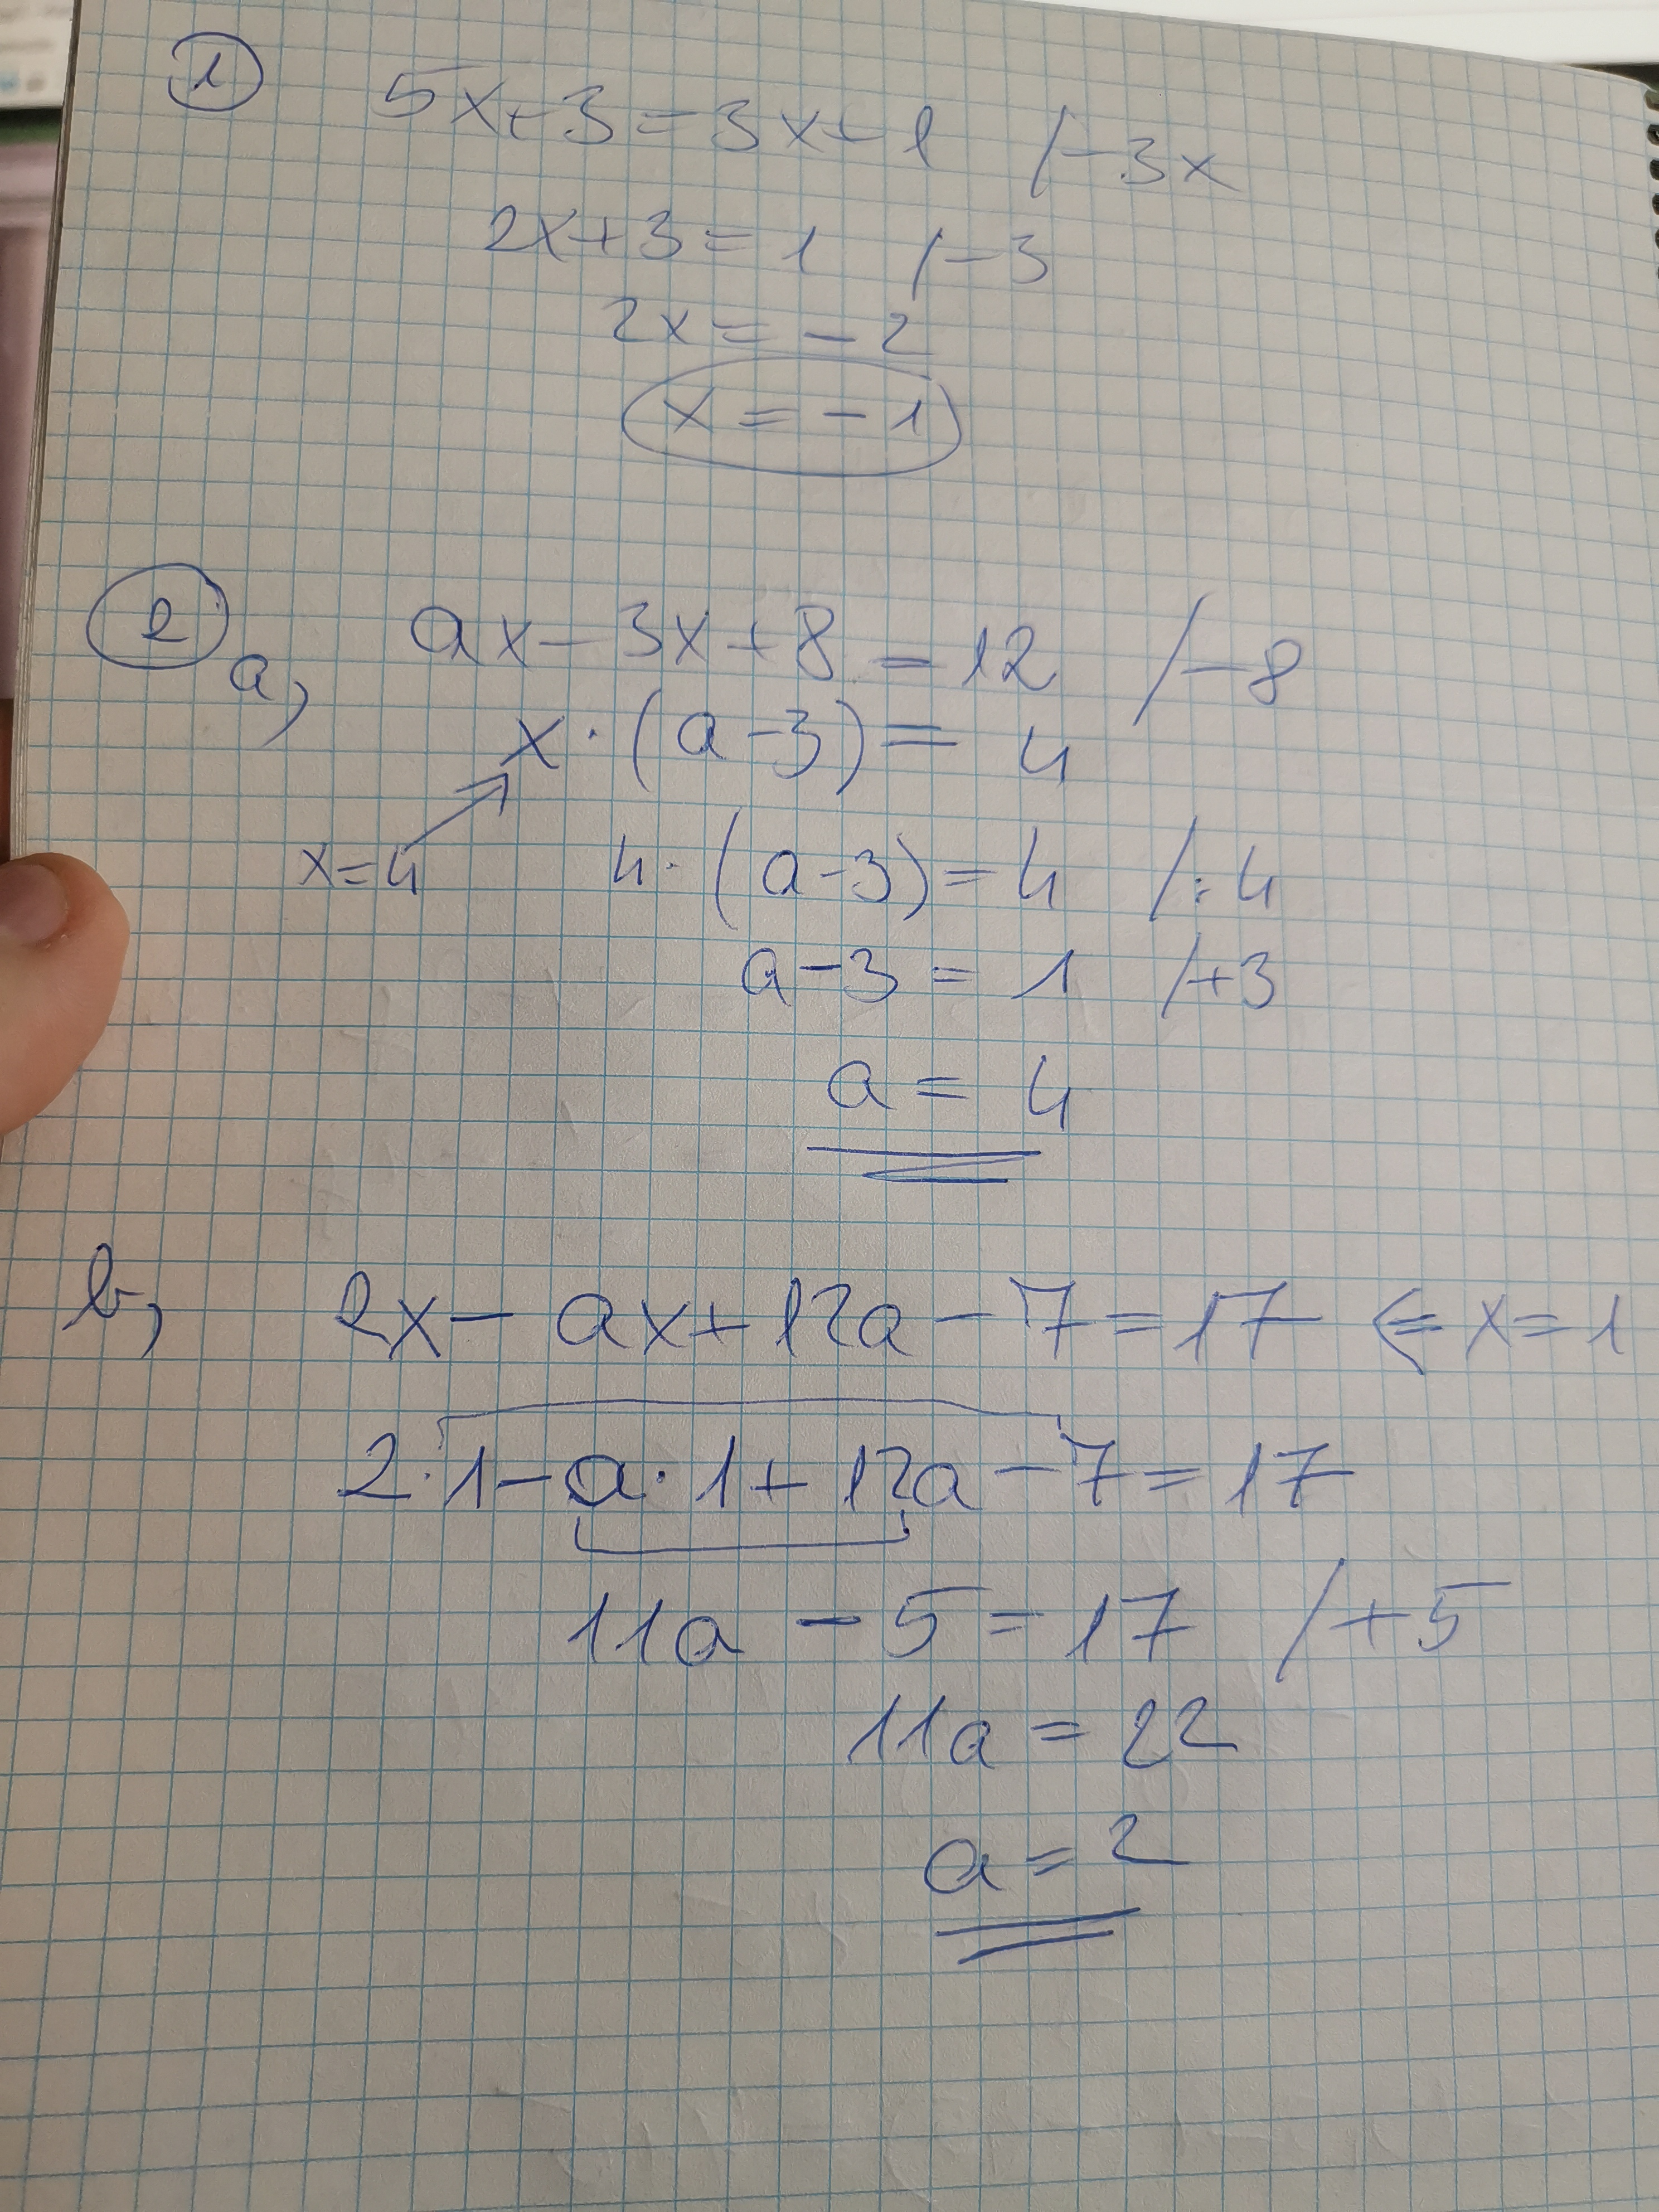 1
5x+3=3x+1 /-3x
2x+3=1 /-3
2x=-2
x=-1
2
a, ax-3x+8=12 /-8
x·(a-3)=4
x=4 4·(a-3)=4 /:4
a-3=1 /+3
a=4
b, 2x-ax+12a-7=17 ⇐ x=1
2·1-a·1+12a-7=17
11a-5=17 /+5
11a=22
a=2